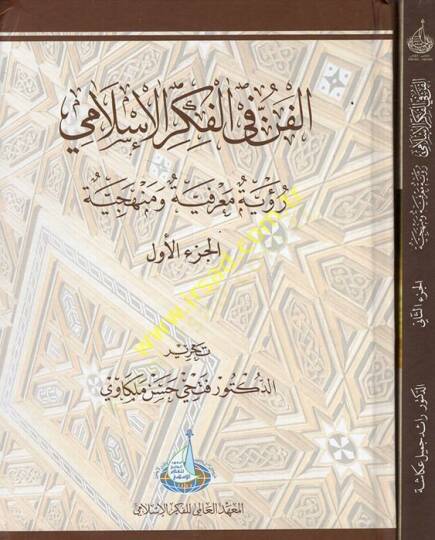 الفن في الفكر الإسلامي
رؤية معرفية ومنهجية
الجزء الأول
تحرير
الدكتور فتحي حسن ملكاوي
المعهد العالمي للفكر الإسلامي
الفن في الفكر الإسلامي
رؤية معرفية ومنهجية
الجزء الثاني
الدكتور رائد جميل عكاشة